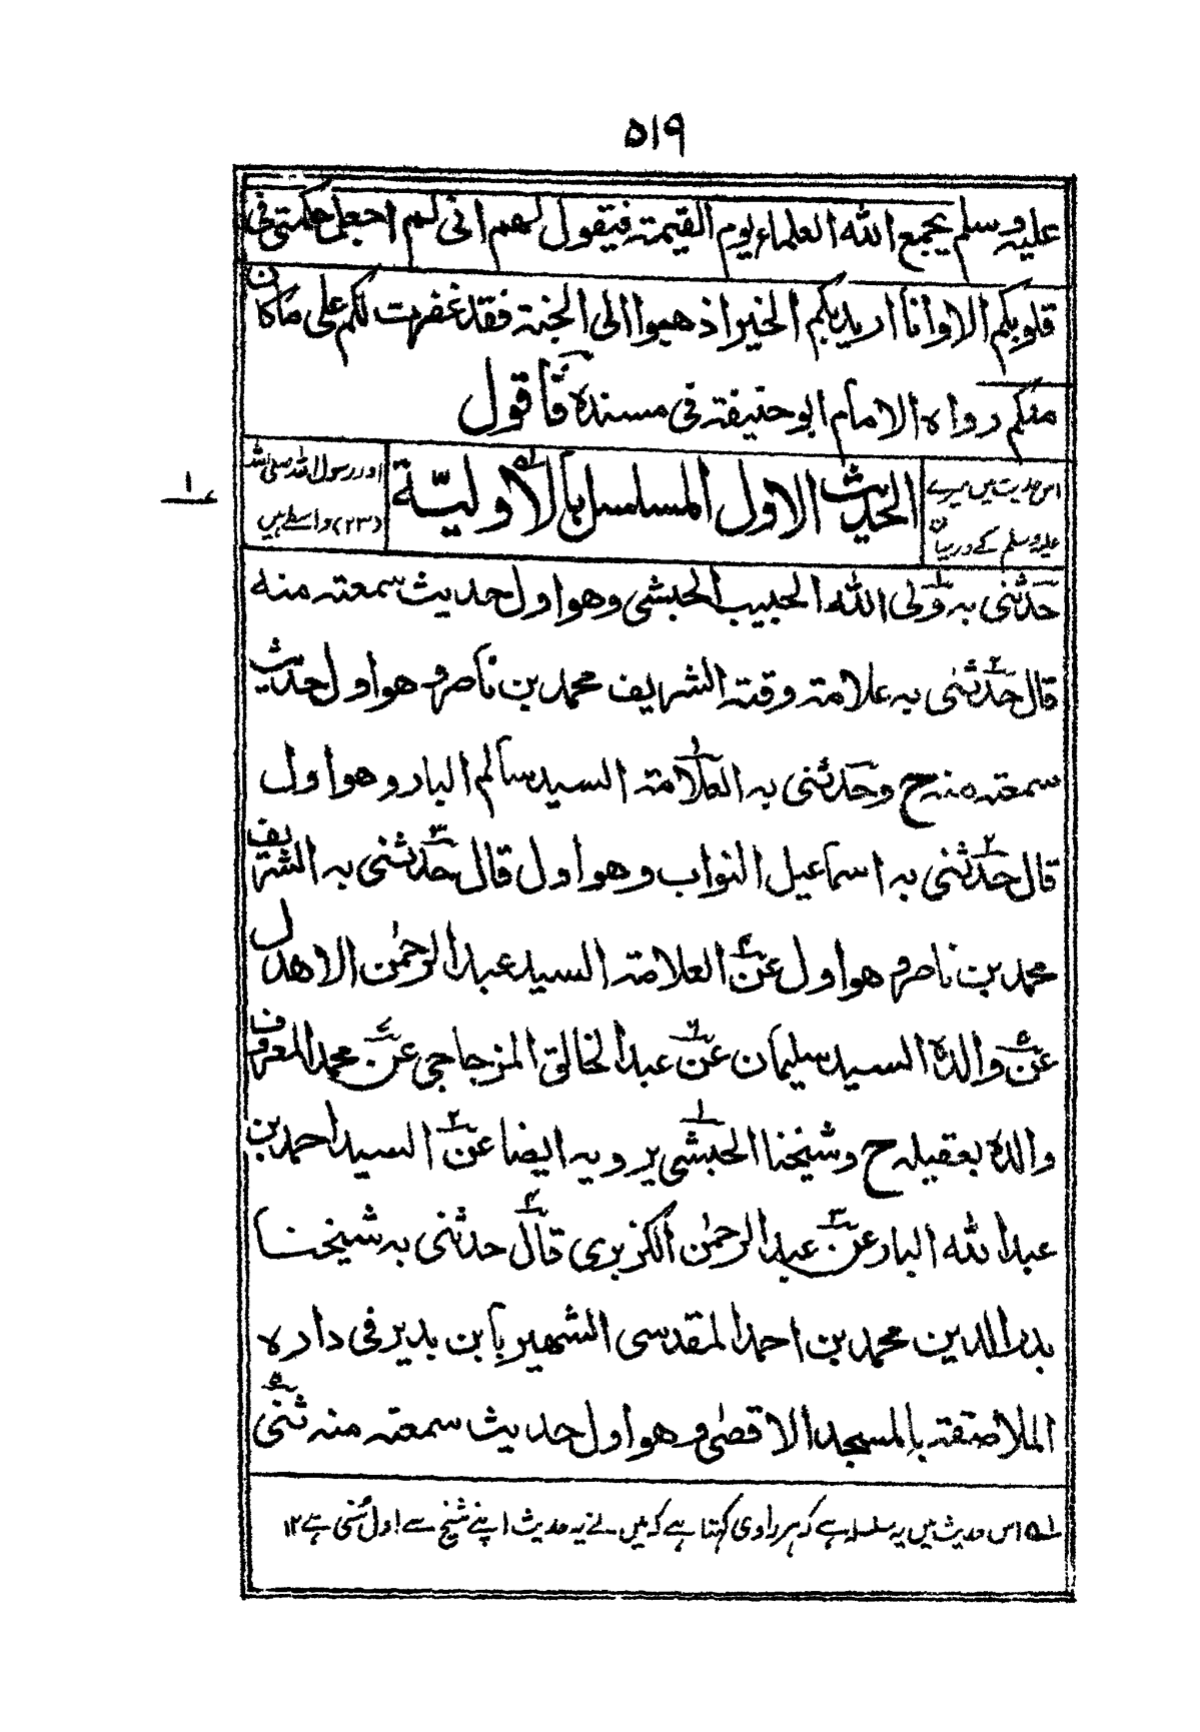 ۵۱۹
عليه وسلم يجمع الله العلماء يوم القيمة فيقول لهم انى لم اجعل حكمتى فى
قلوبكم الا وانا اريد بكم الخير اذهبوا الى الجنة فقد غفرت لكم على ما كان
منكم رواه الامام ابو حنيفة فى مسنده فأقول
الحديث الاول المسلسل بالاولیّة
اس حدیث میں میرے اور رسول اللہ صلی اللہ
علیہ وسلم کے درمیان (۲۳) واسطے ہیں
۱
حدثنى به ولى الله الحبيب الحبشى وهو اول حديث سمعته منه
قال حدثنى به علامة وقته الشريف محمد بن ناصر وهو اول حديث
سمعته منه ح وحدثنى به العلامة السيد سالم البار وهو اول
قال حدثنى به اسماعيل النواب وهو اول قال حدثنى به الشريف
محمد بن ناصر وهو اول عن العلامة السيد عبد الرحمٰن الاهدل
عن والده السيد سليمان عن عبد الخالق المزجاجى عن محمد المعروف
والده بعقيله ح وشيخنا الحبشى يرويه ايضا عن السيد احمد بن
عبد الله البار عن عبد الرحمٰن الكزبرى قال حدثنى به شيخنا
بدر الدين محمد بن احمد المقدسى الشهير بابن بدير فى داره
الملاصقة بالمسجد الاقصٰى وهو اول حديث سمعته منه ثنى
لہ اس حدیث میں یہ سلسلہ ہے کہ ہر راوی کہتا ہے کہ میں نے یہ حدیث اپنے شیخ سے اول سُنی ہے ۱۲